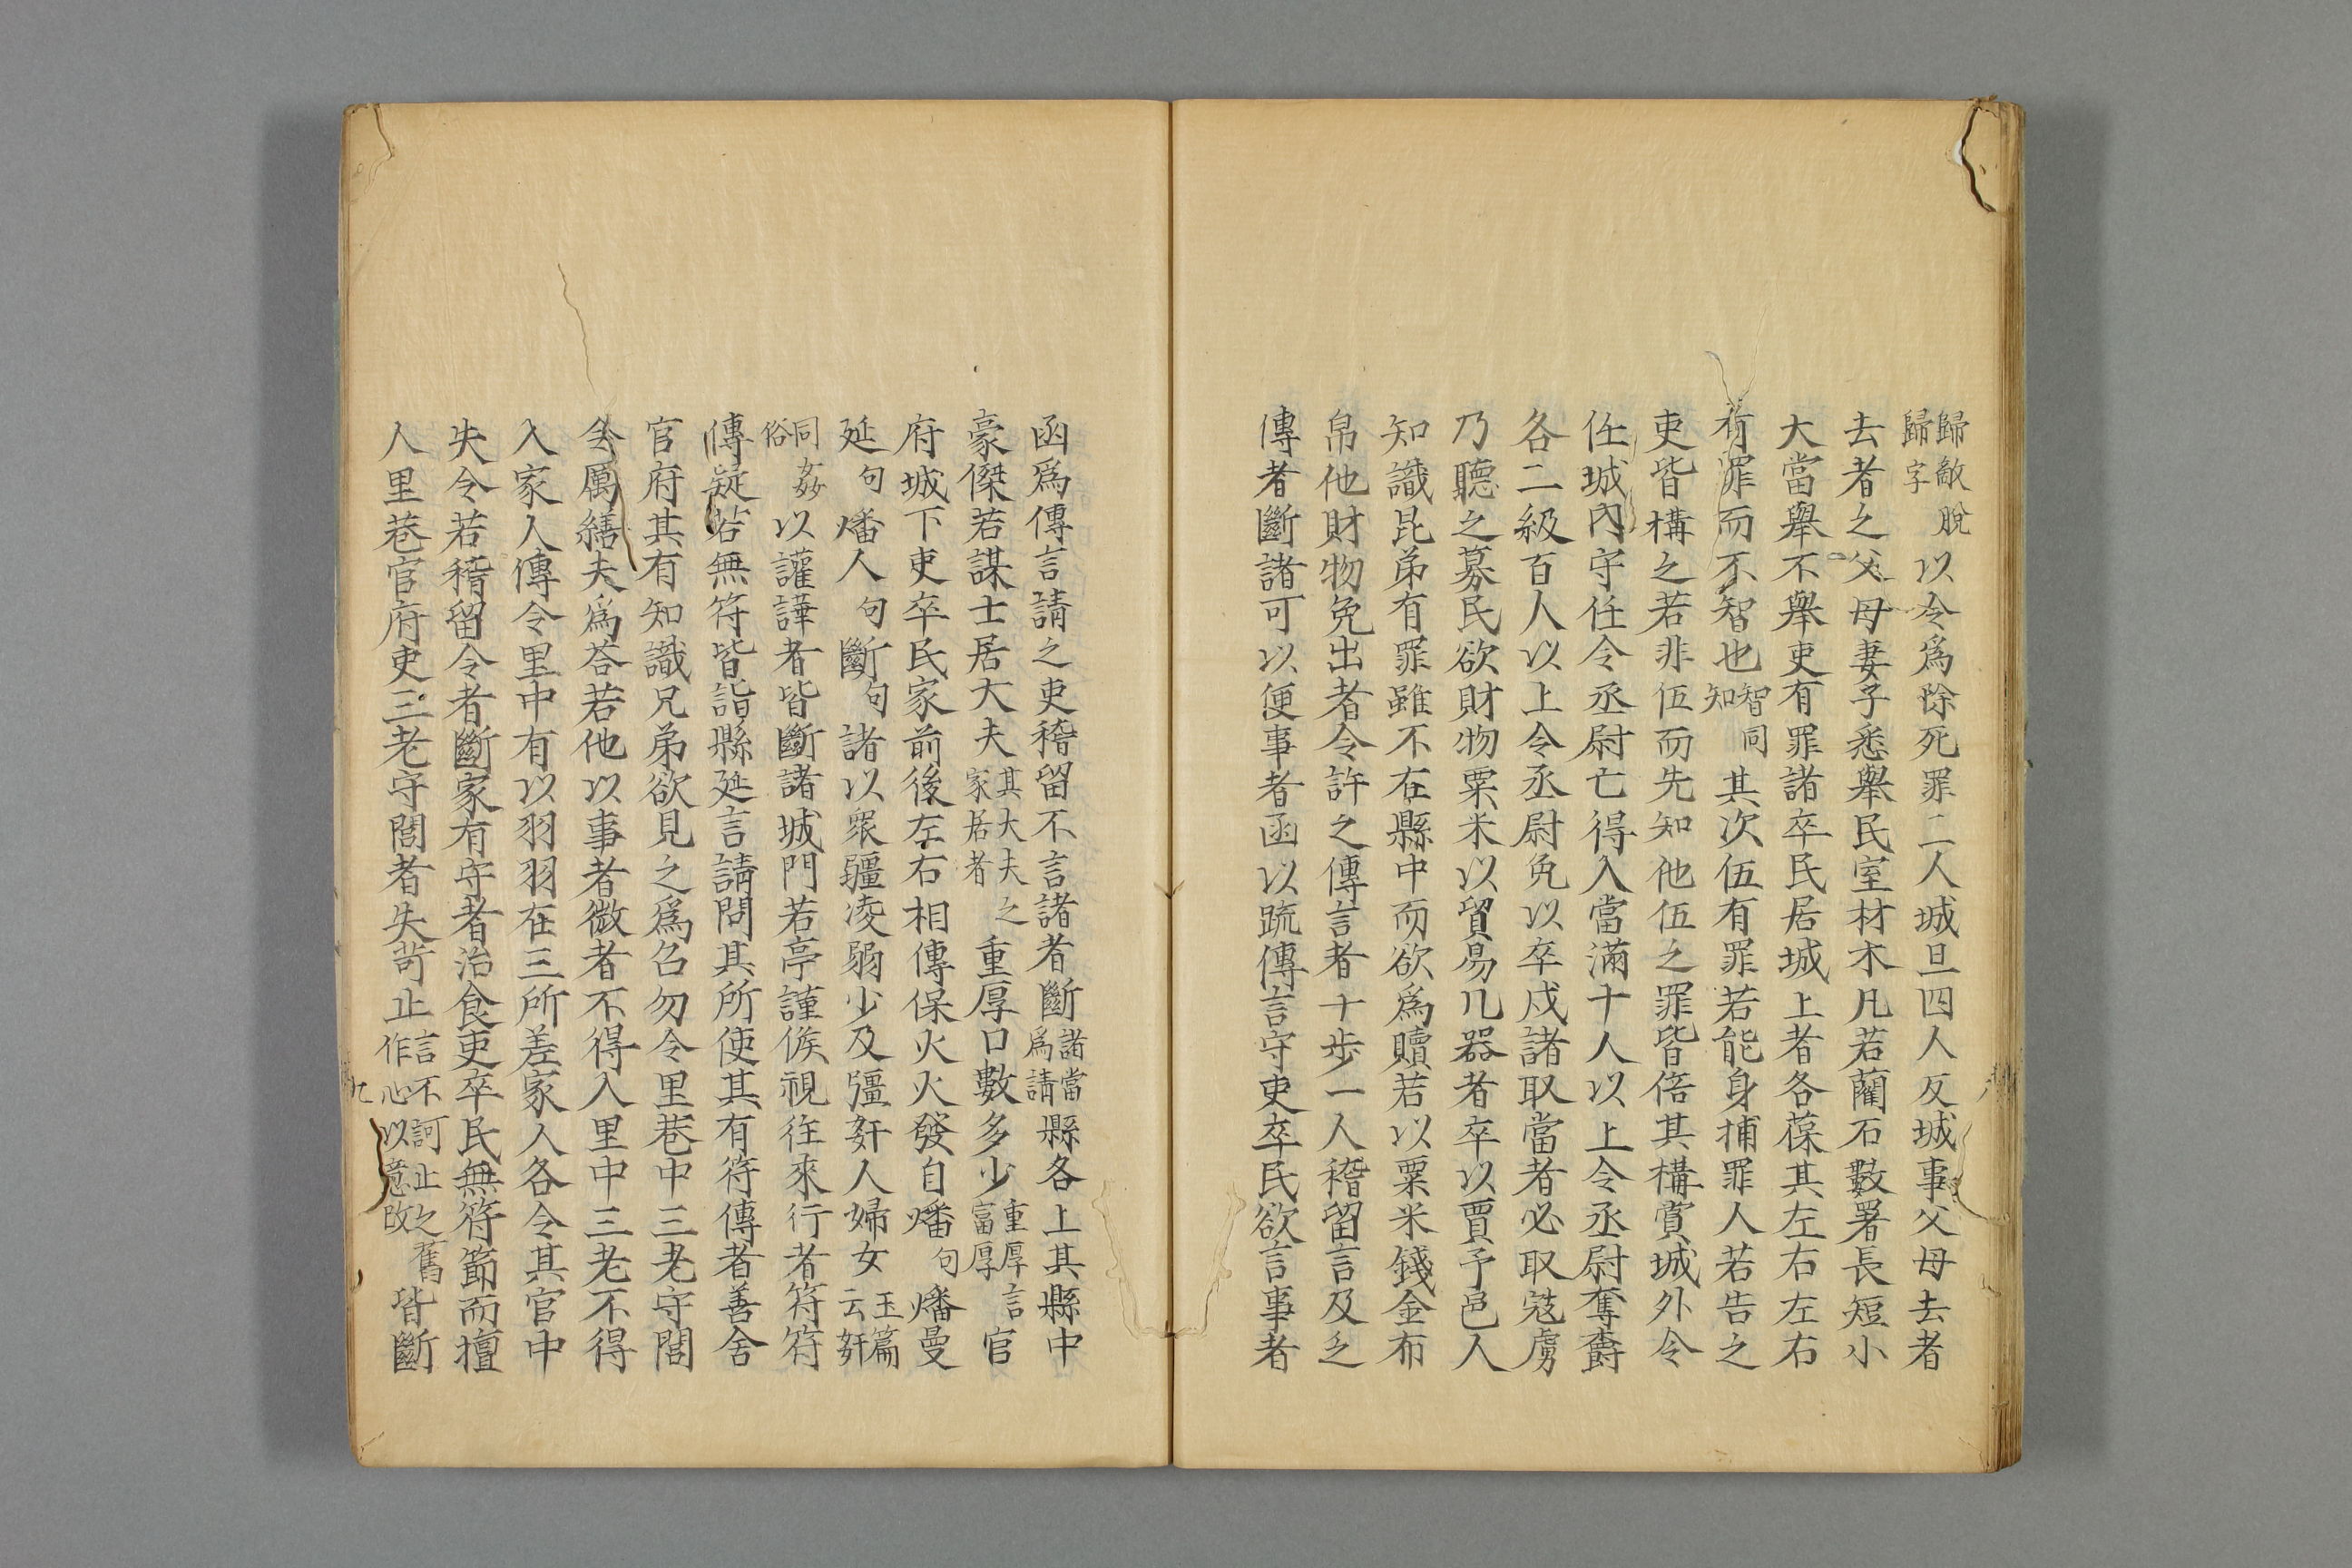 歸敵脫歸字以令爲除死罪二人城旦四人反城事父母去者
去者之父母妻子悉舉民室材木凡若藺石數署長短小
大當舉不舉吏有罪諸卒民居城上者各葆其左右左右
有罪而不智也智同知其次伍有罪若能身捕罪人若告之
吏皆構之若非伍而先知他伍之罪皆倍其構賞城外令
任城內守任令丞尉亡得入當滿十人以上令丞尉奪爵
各二級百人以上令丞尉免以卒戍諸取當者必取寇虜
乃聽之募民欲財物粟米以貿易凡器者卒以賈予邑人
知識昆弟有罪雖不在縣中而欲爲贖若以粟米錢金布
帛他財物免出者令許之傳言者十步一人稽留言及乏
傳者斷諸可以便事者函以疏傳言守吏卒民欲言事者
函爲傳言請之吏稽留不言諸者斷諸當爲請縣各上其縣中
豪傑若謀士居大夫其大夫之家居者重厚口數多少重厚言富厚官
府城下吏卒民家前後左右相傳保火火發自燔句燔曼
延句燔人句斷句諸以眾彊凌弱少及彊奸人婦女玉篇云奸
同姦俗以讙譁者皆斷諸城門若亭謹候視往來行者符符
傳疑若無符皆詣縣延言請問其所使其有符傳者善舍
官府其有知識兄弟欲見之爲召勿令里巷中三老守閭
令厲繕夫爲荅若他以事者微者不得入里中三老不得
入家人傳令里中有以羽羽在三所差家人各令其官中
失令若稽留令者斷家有守者治食吏卒民無符節而擅
人里巷官府吏三老守閭者失苛止言不訶止之舊作心以意改皆斷
九